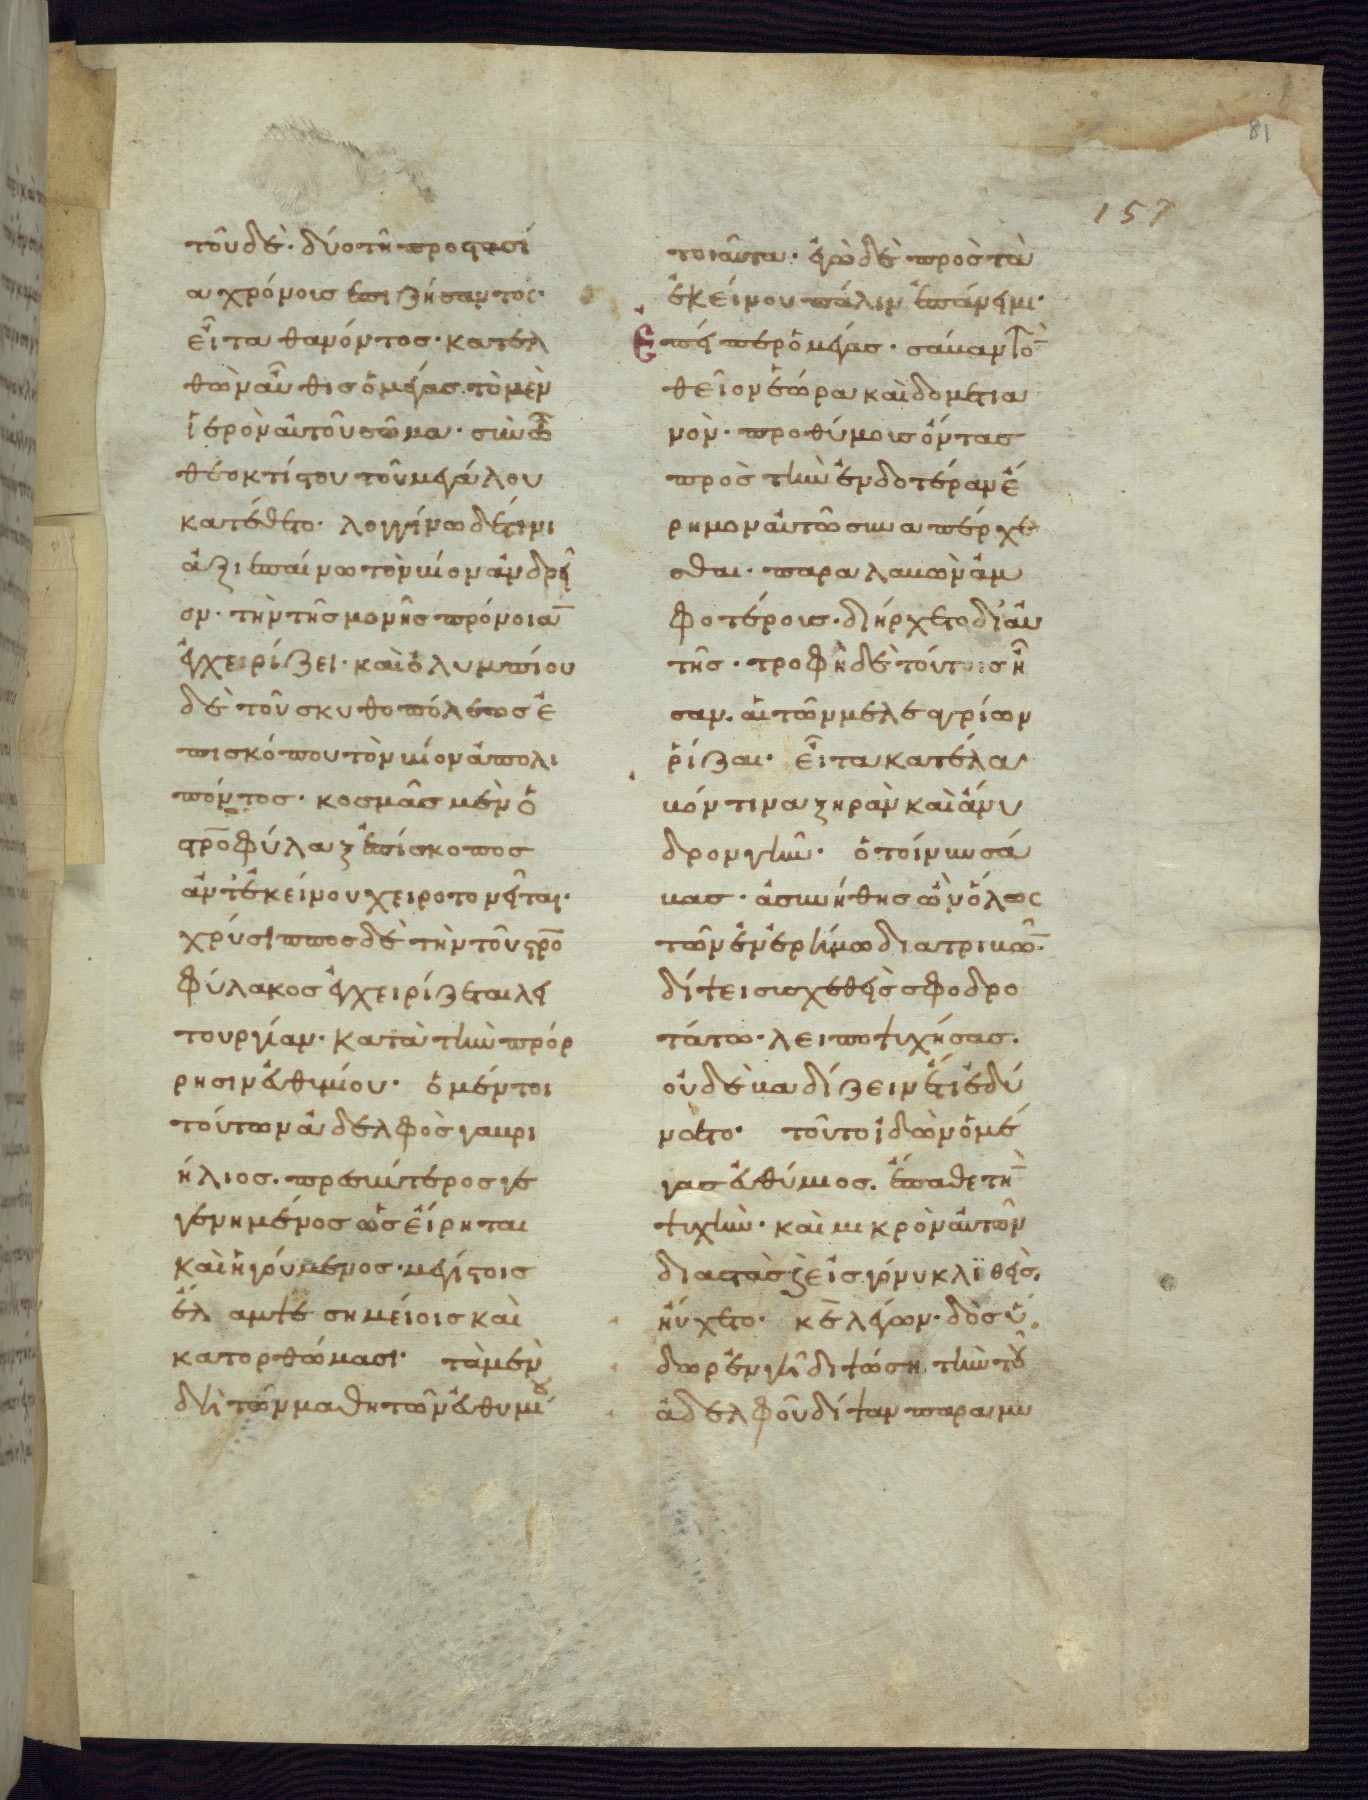 81
157
τοῦ δὲ· δύο τῆ προστασί
α χρόνοις ἐπιζήσαντος·
εἶτα θανόντος· κατελ
θὼν αὖθις ὁ μέγας. τὸ μὲν
ἱερὸν αὐτοῦ σῶμα· σὺν τῶ
θεοκτίστου τοῦ μεγάλου
κατέθετο. λογγίνω δέ τινι
ἀξιεπαίνω τὸν βίον ἀνδρεῖ
ον· τὴν τῆς μονῆς πρόνοιαν
ἐγχειρίζει· καὶ ὀλυμπίου
δὲ τοῦ σκυθοπόλεως ἐ
πισκόπου τὸν βίον ἀπολι
πόντος· κοσμᾶς μὲν ὁ
σταυροφύλαξ ἐπίσκοπος
ἀντ' ἐκείνου χειροτονεῖται·
χρύσιππος δὲ τὴν τοῦ σταυρο
φύλακος ἐγχειρίζεται λει
τουργίαν· κατὰ τὴν πρόρ
ρησιν εὐθυμίου· ὁ μέντοι
τούτων ἀδελφὸς γαβρι
ήλιος. πρεσβύτερος γε
γενημένος ὡς εἴρηται
καὶ ἡγούμενος· μεγίστοις
ἐλαμψε σημείοις καὶ
κατορθώμασι· τὰ μὲν
δὴ τῶν μαθητῶν εὐθυμίου
τοιαῦτα· ἐγὼ δὲ πρὸς τὰ
ἐκείνου πάλιν ἐπάνειμι·
Ἐπεὶ περ ὁ μέγας· σάβαν τὸν
θεῖον ἑώρα καὶ δομετια
νὸν· προθύμοις ὄντας
πρὸς τὴν ἐνδοτέραν ἔ
ρημον αὐτῶ συναπέρχε
σθαι· παραλαβὼν ἀμ
φοτέροις· διήρχετο δι' αὐ
τῆς· τροφὴ δὲ τούτοις ἦ
σαν. αἱ τῶν μελεαγρίων
ῥίζαι· εἶτα κατέλα
βόν τινα ξηρὰν καὶ ἄνυ
δρον γῆν· ὁ τοίνυν σά
βας· ἀσυνήθης ὢν ὅλως
τῶν ἐν ἐρήμω διατριβῶν·
δίψει συσχεθεὶς σφοδρο
τάτω· λειποψυχήσας.
οὐδὲ βαδίζειν ἔτι ἐδύ
νατο· τοῦτο ἰδὼν ὁ μέ
γας εὐθύμιος. ἔπαθε τὴν
ψυχὴν· καὶ μικρὸν αὐτῶν
διαστὰς εἰς γόνυ κλιθεὶς.
ηὔχετο· κ(ύρι)ε λέγων· δὸς ὕ
δωρ ἐν γῆ διψώση τὴν τοῦ
ἀδελφοῦ δίψαν παραμυ